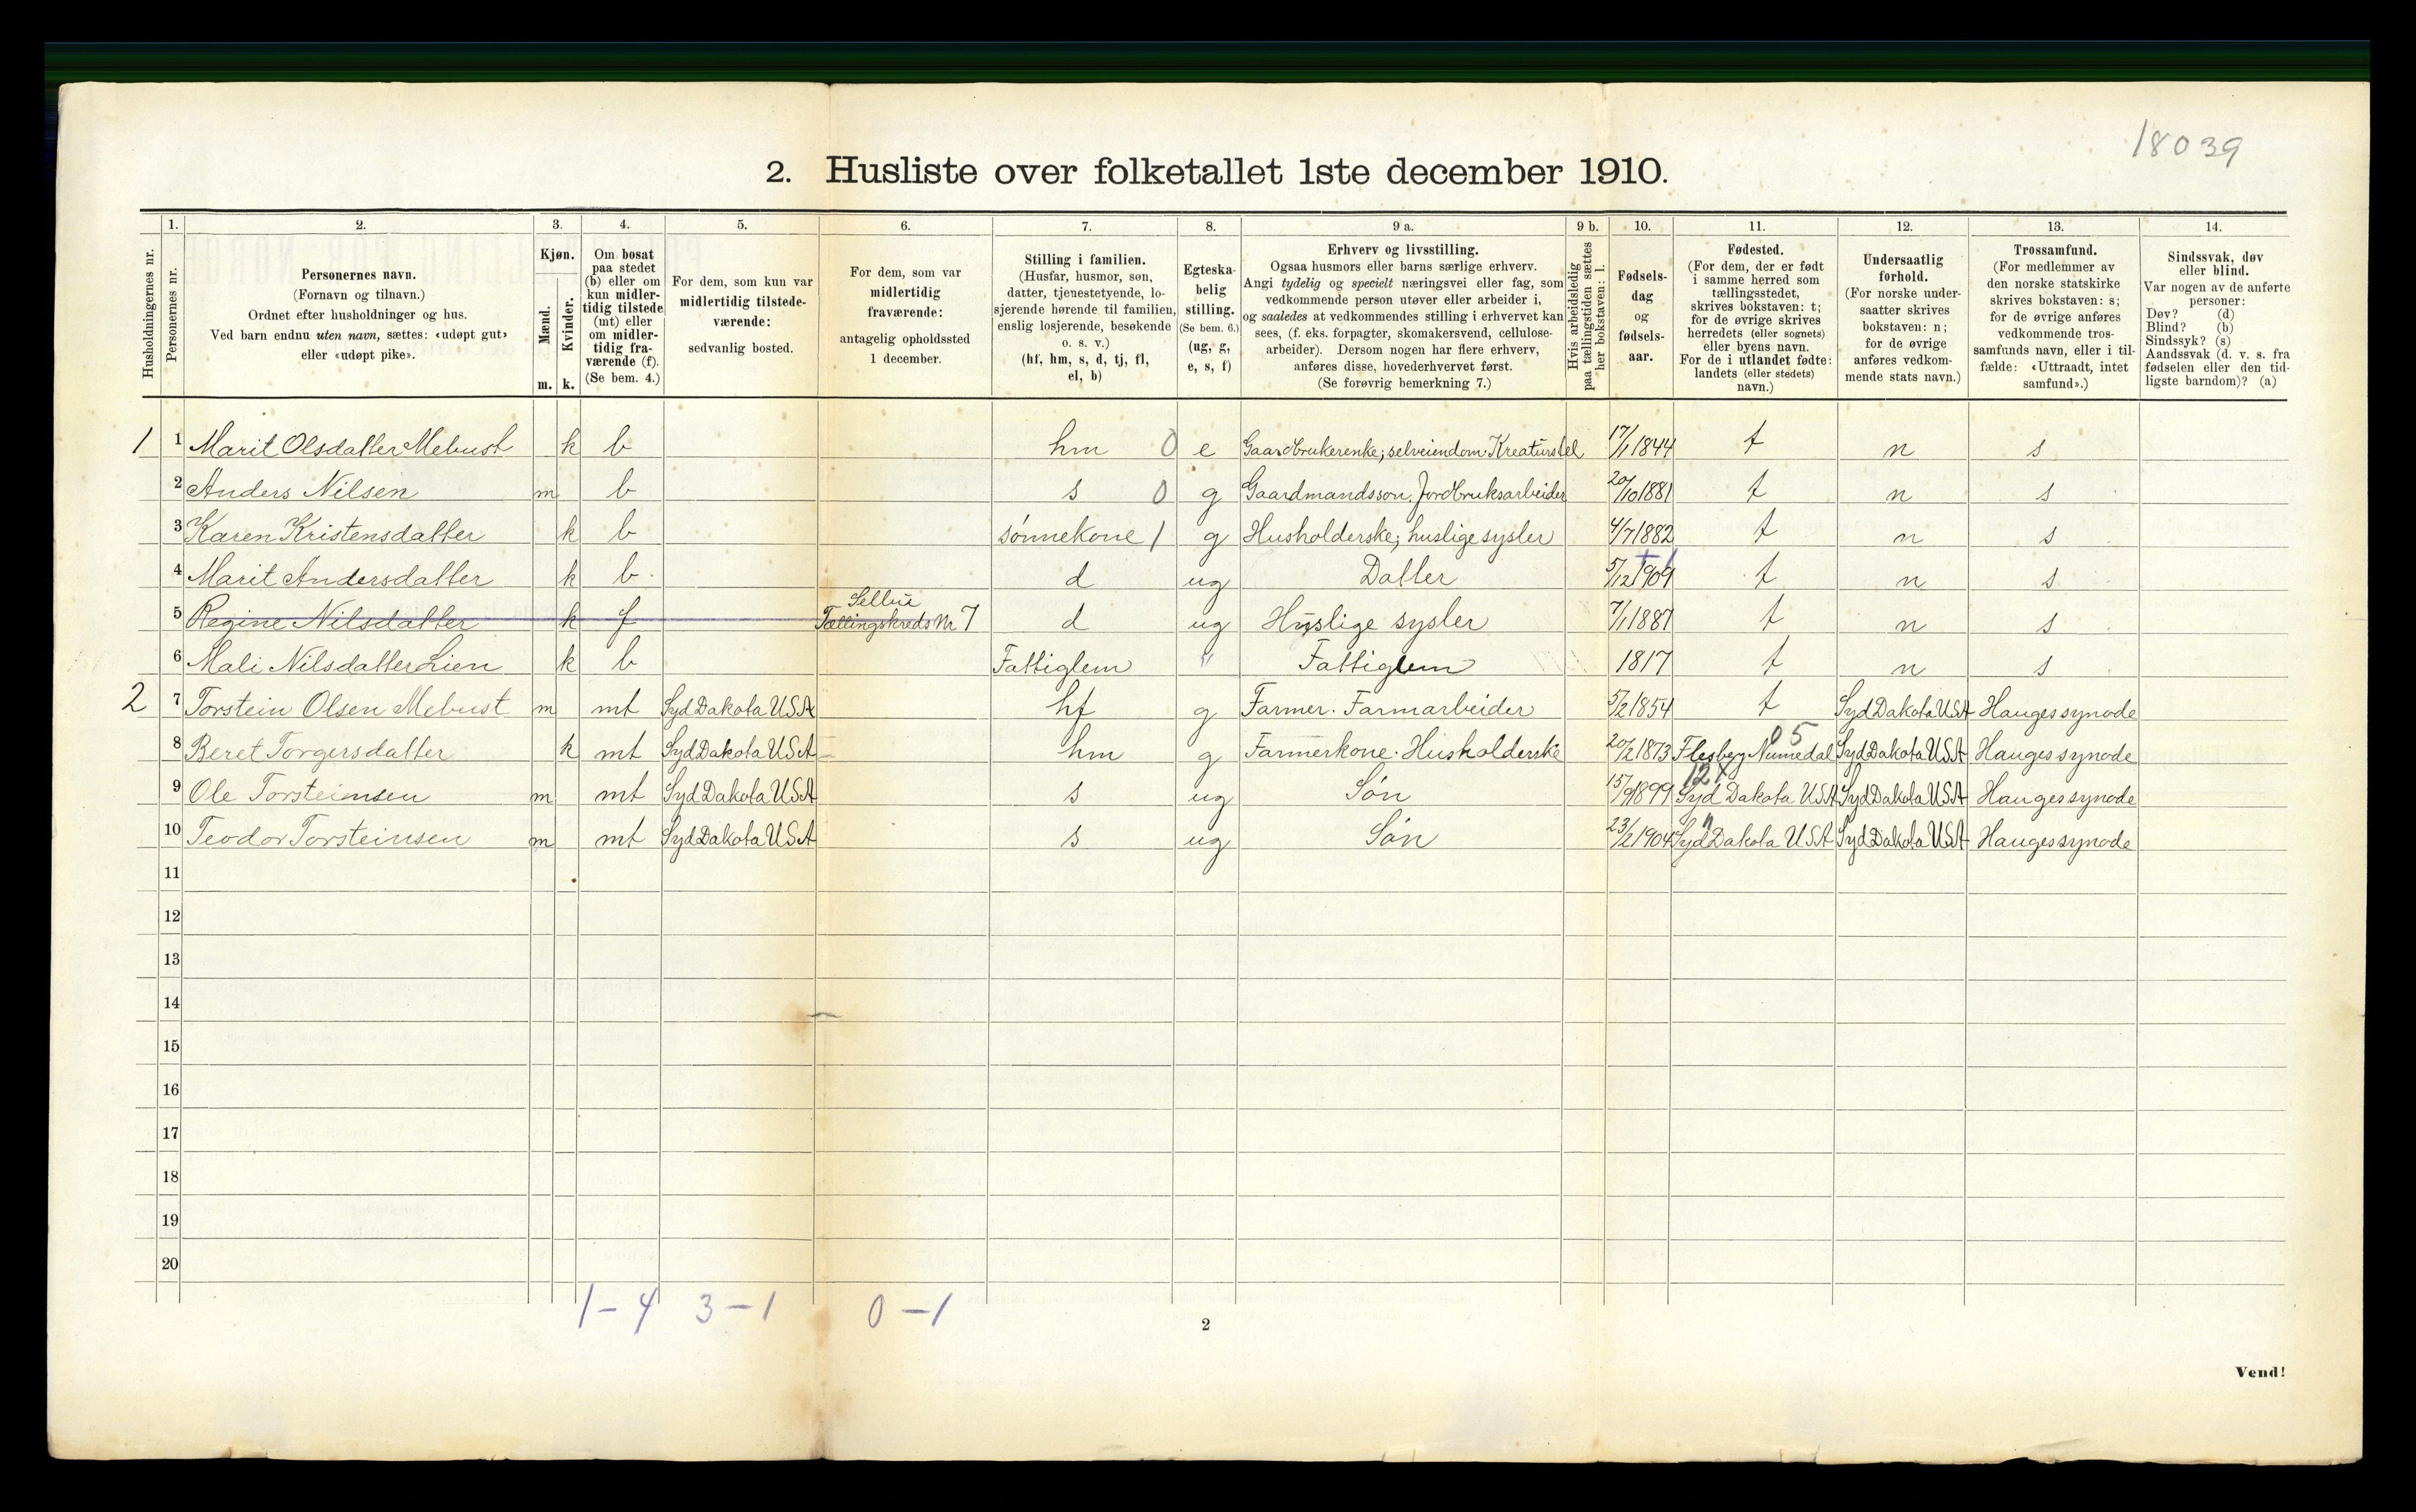 18039
2. Husliste over folketallet 1ste december 1910.
Husholdningernes nr.
1.
Personernes nr.
2.
Personernes navn.
(Fornavn og tilnavn.)
Ordnet efter husholdninger og hus.
Ved barn endnu uten navn, sættes: «udøpt gut»
eller «udøpt pike».
3.
Kjøn.
Mænd.
Kvinder.
m. k.
4.
Om bosat
paa stedet
(b) eller om
kun midler-
tidig tilstede
(mt) eller
om midler-
tidig fra-
værende (f).
(Se bem. 4.)
5.
For dem, som kun var
midlertidig tilstede-
værende:
sedvanlig bosted.
6.
For dem, som var
midlertidig
fraværende:
antagelig opholdssted
1 december.
7.
Stilling i familien.
(Husfar, husmor, søn,
datter, tjenestetyende, lo-
sjerende hørende til familien,
enslig losjerende, besøkende
o. s. v.)
(hf, hm, s, d, tj, fl,
el, b)
8.
Egteska-
belig
stilling.
(Se bem. 6.)
(ug, g,
e, s, f)
9 a.
Erhverv og livsstilling.
Ogsaa husmors eller barns særlige erhverv.
Angi tydelig og specielt næringsvei eller fag, som
vedkommende person utøver eller arbeider i,
og saaledes at vedkommendes stilling i erhvervet kan
sees, (f. eks. forpagter, skomakersvend, cellulose-
arbeider). Dersom nogen har flere erhverv,
anføres disse, hovederhvervet først.
(Se forøvrig bemerkning 7.)
9 b.
Hvis arbeidsledig
paa tællingstiden sættes
her bokstaven: l.
10.
Fødsels-
dag
og
fødsels-
aar.
11.
Fødested.
(For dem, der er født
i samme herred som
tællingsstedet,
skrives bokstaven: t;
for de øvrige skrives
herredets (eller sognets)
eller byens navn.
For de i utlandet fødte:
landets (eller stedets)
navn.)
12.
Undersaatlig
forhold.
(For norske under-
saatter skrives
bokstaven: n;
for de øvrige
anføres vedkom-
mende stats navn.)
13.
Trossamfund.
(For medlemmer av
den norske statskirke
skrives bokstaven: s;
for de øvrige anføres
vedkommende tros-
samfunds navn, eller i til-
fælde: «Uttraadt, intet
samfund».)
14.
Sindssvak, døv
eller blind.
Var nogen av de anførte
personer:
Døv? (d)
Blind? (b)
Sindssyk? (s)
Aandssvak (d. v. s. fra
fødselen eller den tid-
ligste barndom)? (a)
1 1 Marit Olsdatter Mebust k b hm 0 e Gaardbrukerenke; selveiendom Kreaturstel 17/1 1844 t n s
2 Anders Nilsen m b s 0 g Gaardmandsson. Jordbruksarbeider 20/10 1881 t n s
3 Karen Kristensdatter k b sønnekone 1 g Husholderske; huslige sysler 4/7 1882 t n s
4 Marit Andersdatter k b d ug Datter 5/12 1909 t n s
5 Regine Nilsdatter k f Tællingskreds Nr 7 d ug Huslige sysler 7/1 1887 t n s
6 Mali Nilsdatter Lien k b Fattiglem " Fattiglem 1817 t n s
2 7 Torstein Olsen Mebust m mt Syd Dakota USA hf g Farmer. Farmarbeider 5/2 1854 t Syd Dakota USA Hauges synode
05
8 Beret Torgersdatter k mt Syd Dakota USA hm g Farmerkone. Husholderske 20/2 1873 Flesberg Numedal Syd Dakota USA Hauges synode
12
9 Ole Torsteinsen m mt Syd Dakota USA s ug Søn 15/9 1899 Syd Dakota USA Syd Dakota USA Hauges synode
"
10 Teodor Torsteinsen m mt Syd Dakota USA s ug Søn 23/2 1904 Syd Dakota USA Syd Dakota USA Hauges synode
11
12
13
14
15
16
17
18
19
20
1 – 4 3 – 1 0 – 1
2
Vend!